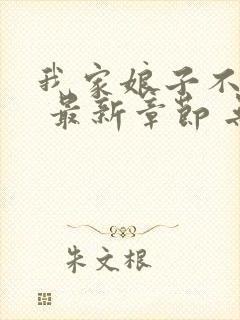 我家娘子不
最新章节
朱文根